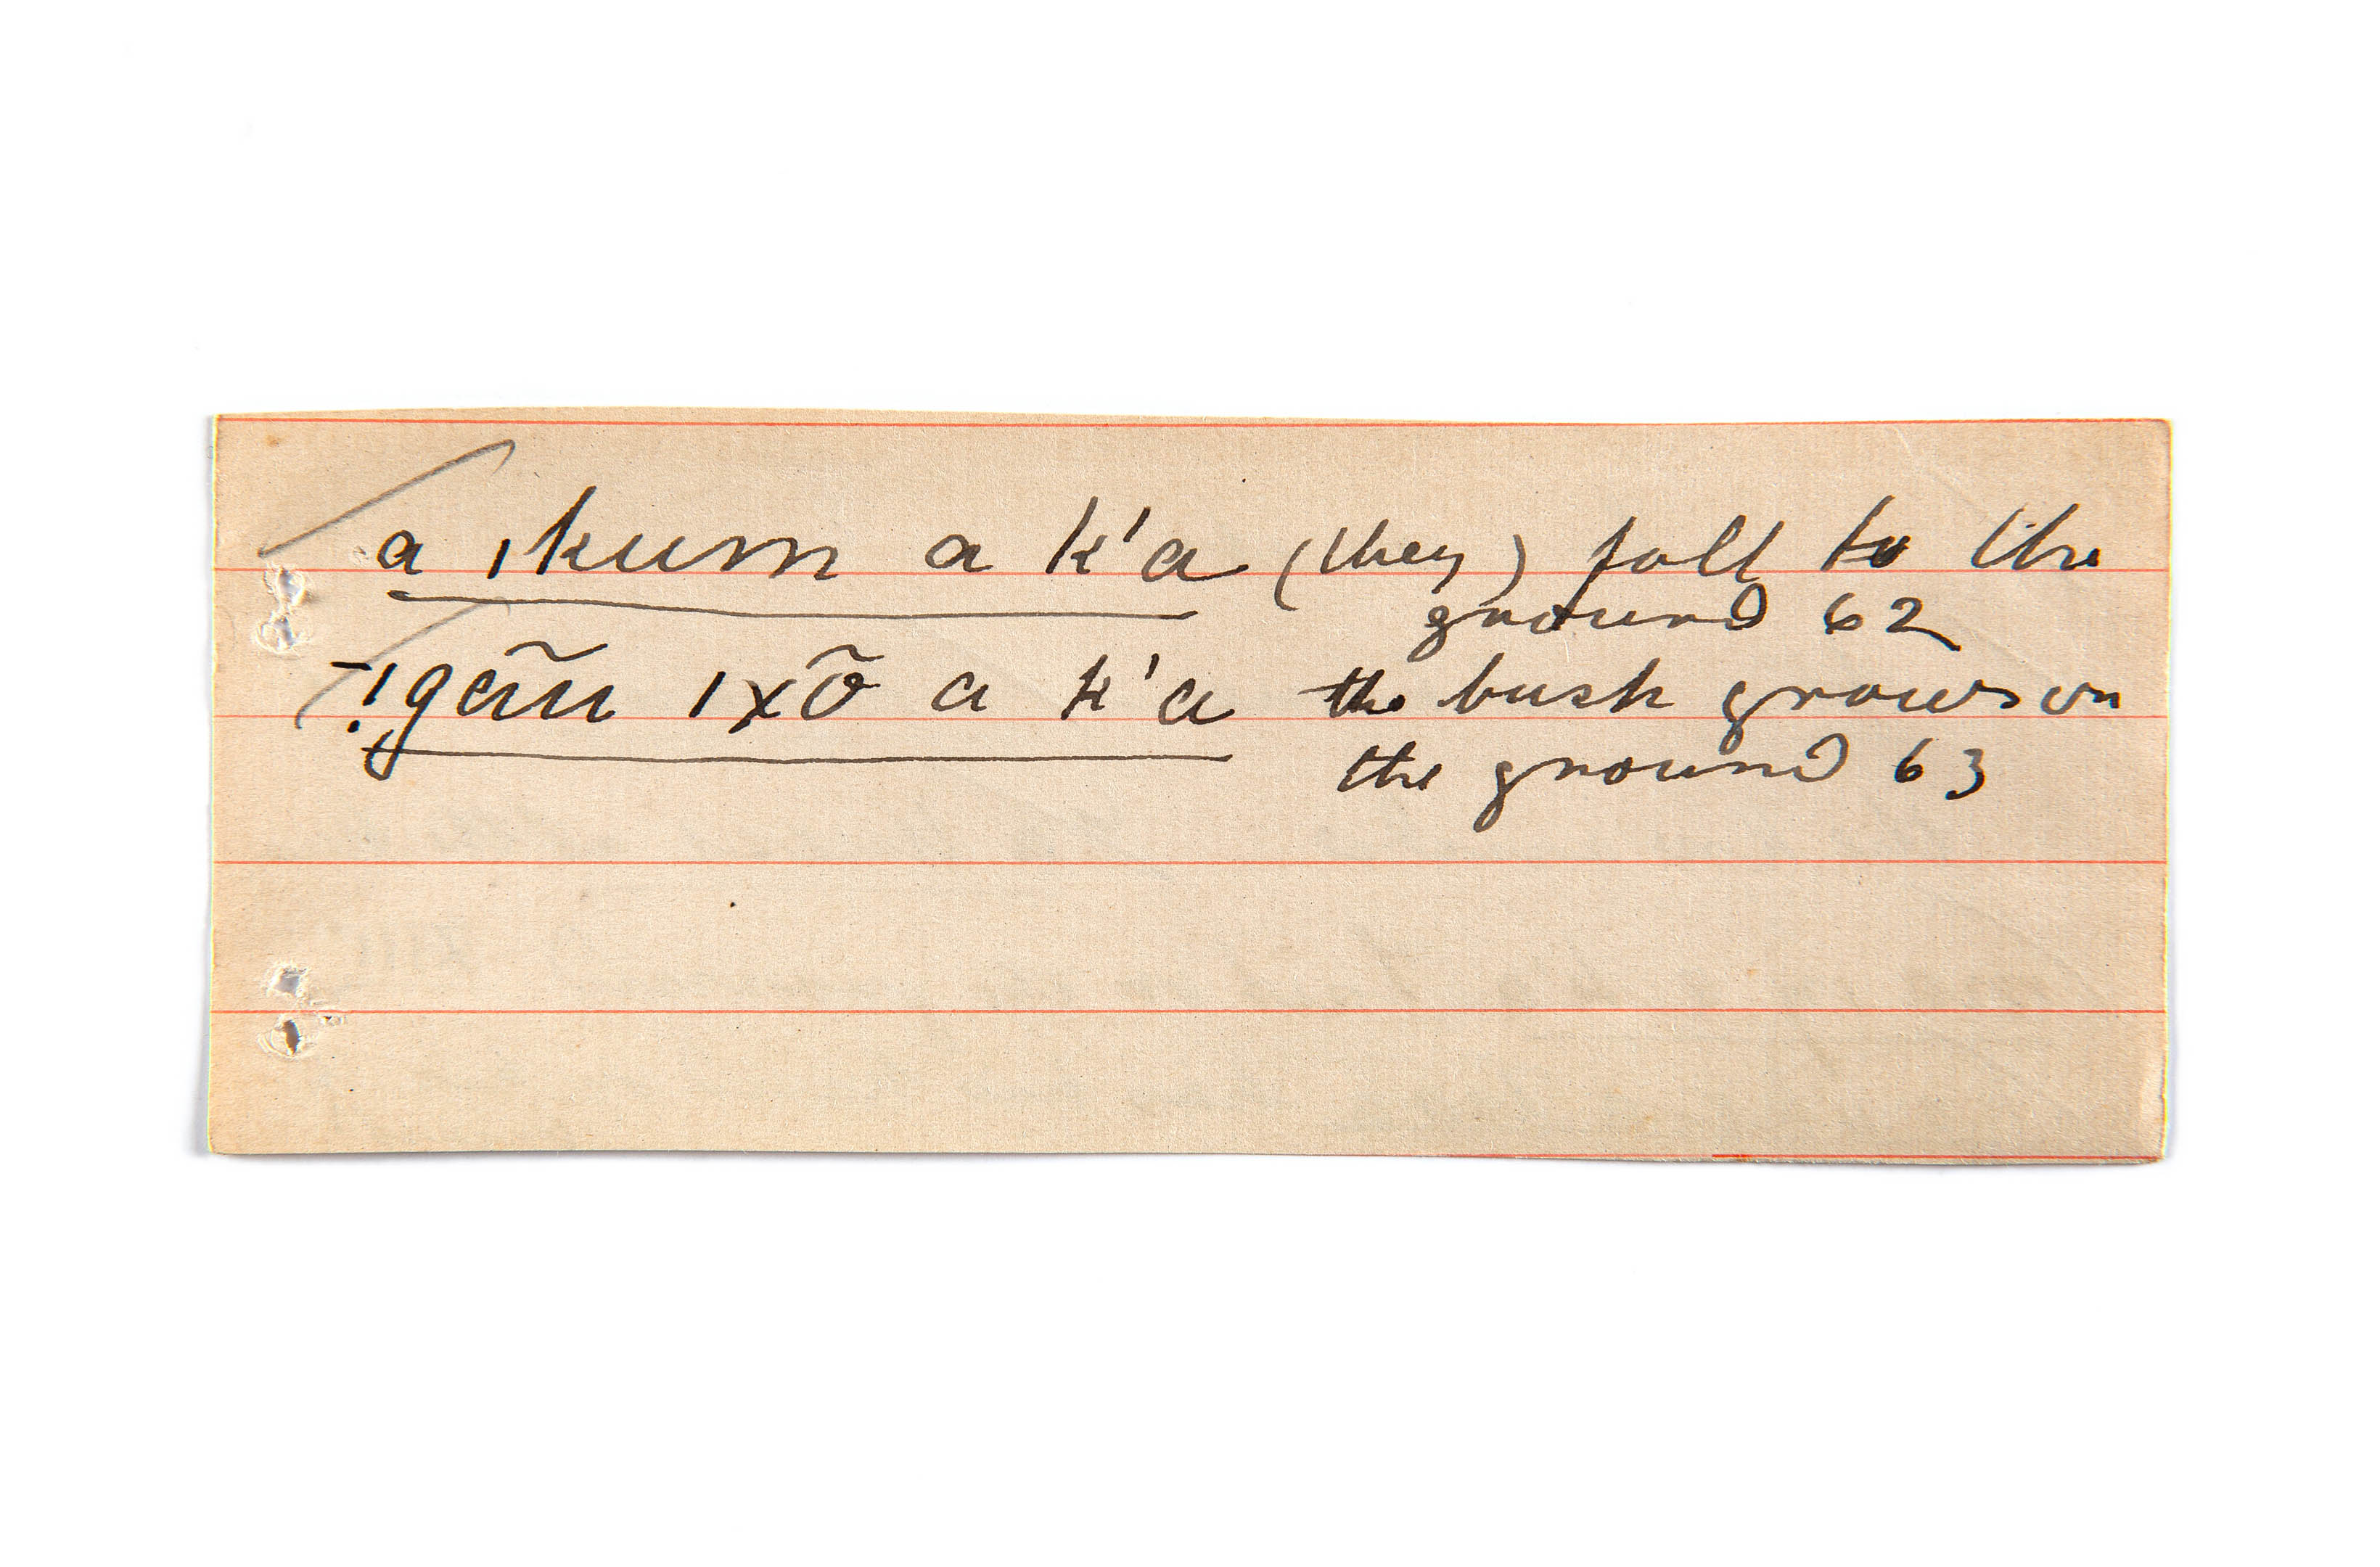 a ıkum a k'a (they) fall to the
ground 62
ı̣gãu ıxõ a k'a the bush grows on
the ground 63